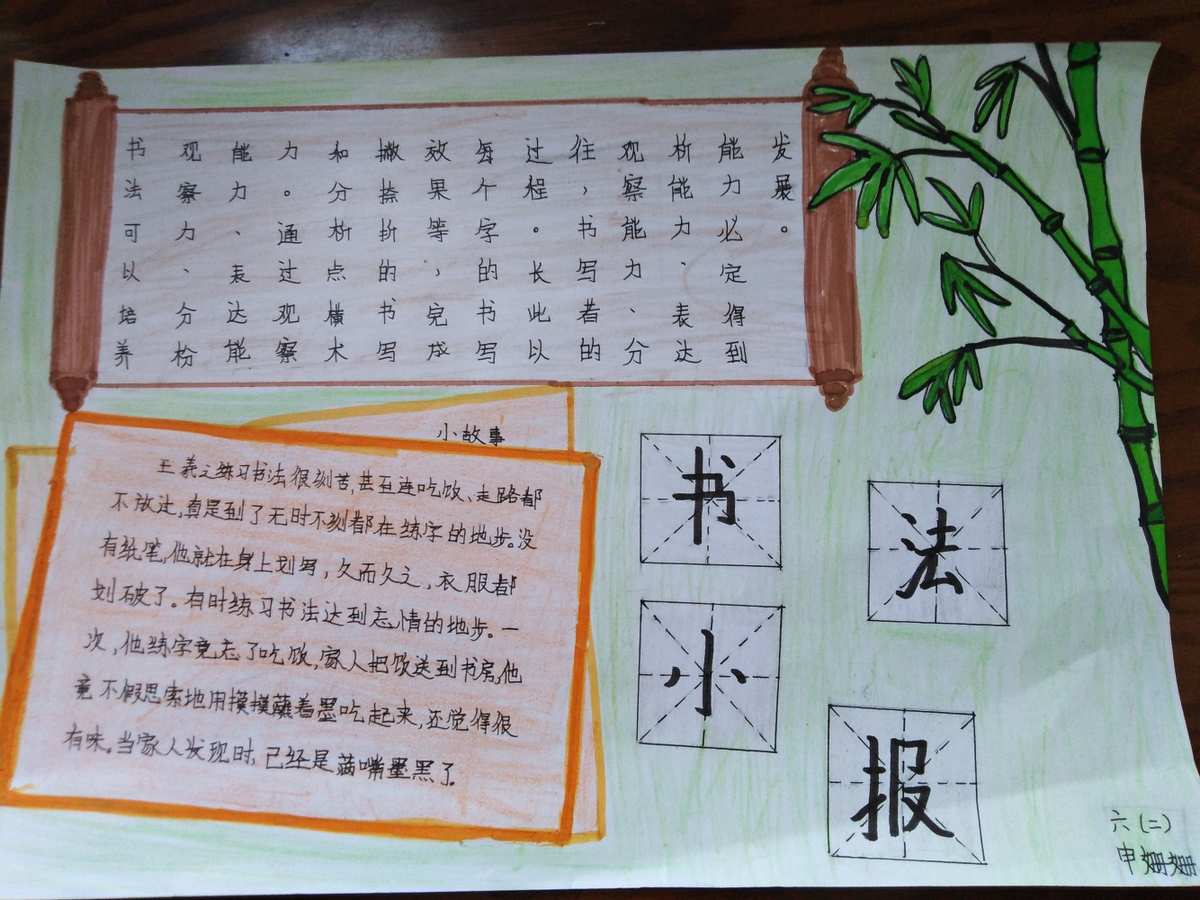 书法可以培养
观察力、分枌
能力、表达能
力。通过观察
和分析点横术
撇捺折的书写
效果等,完成
每个字的书写
过程。长此以
往,书写者的
观察能力、分
析能力、表达
能力必定得到
发展。
小故事
王羲之练习书法很刻苦,甚至连吃饭、走路都
不放过,真是到了无时不刻都在练字的地步。没
有纸笔,他就在身上划写,久而久之,衣服都
划破了。有时练习书法达到忘情的地步。一
次,他练字竟忘了吃饭,家人把饭送到书房,他
竟不假思索地用摸摸蘸着墨吃起来,还觉得很
有味。当家人发现时,已经是满嘴墨黑了。
书
法
小
报
六(二)
申姗姗